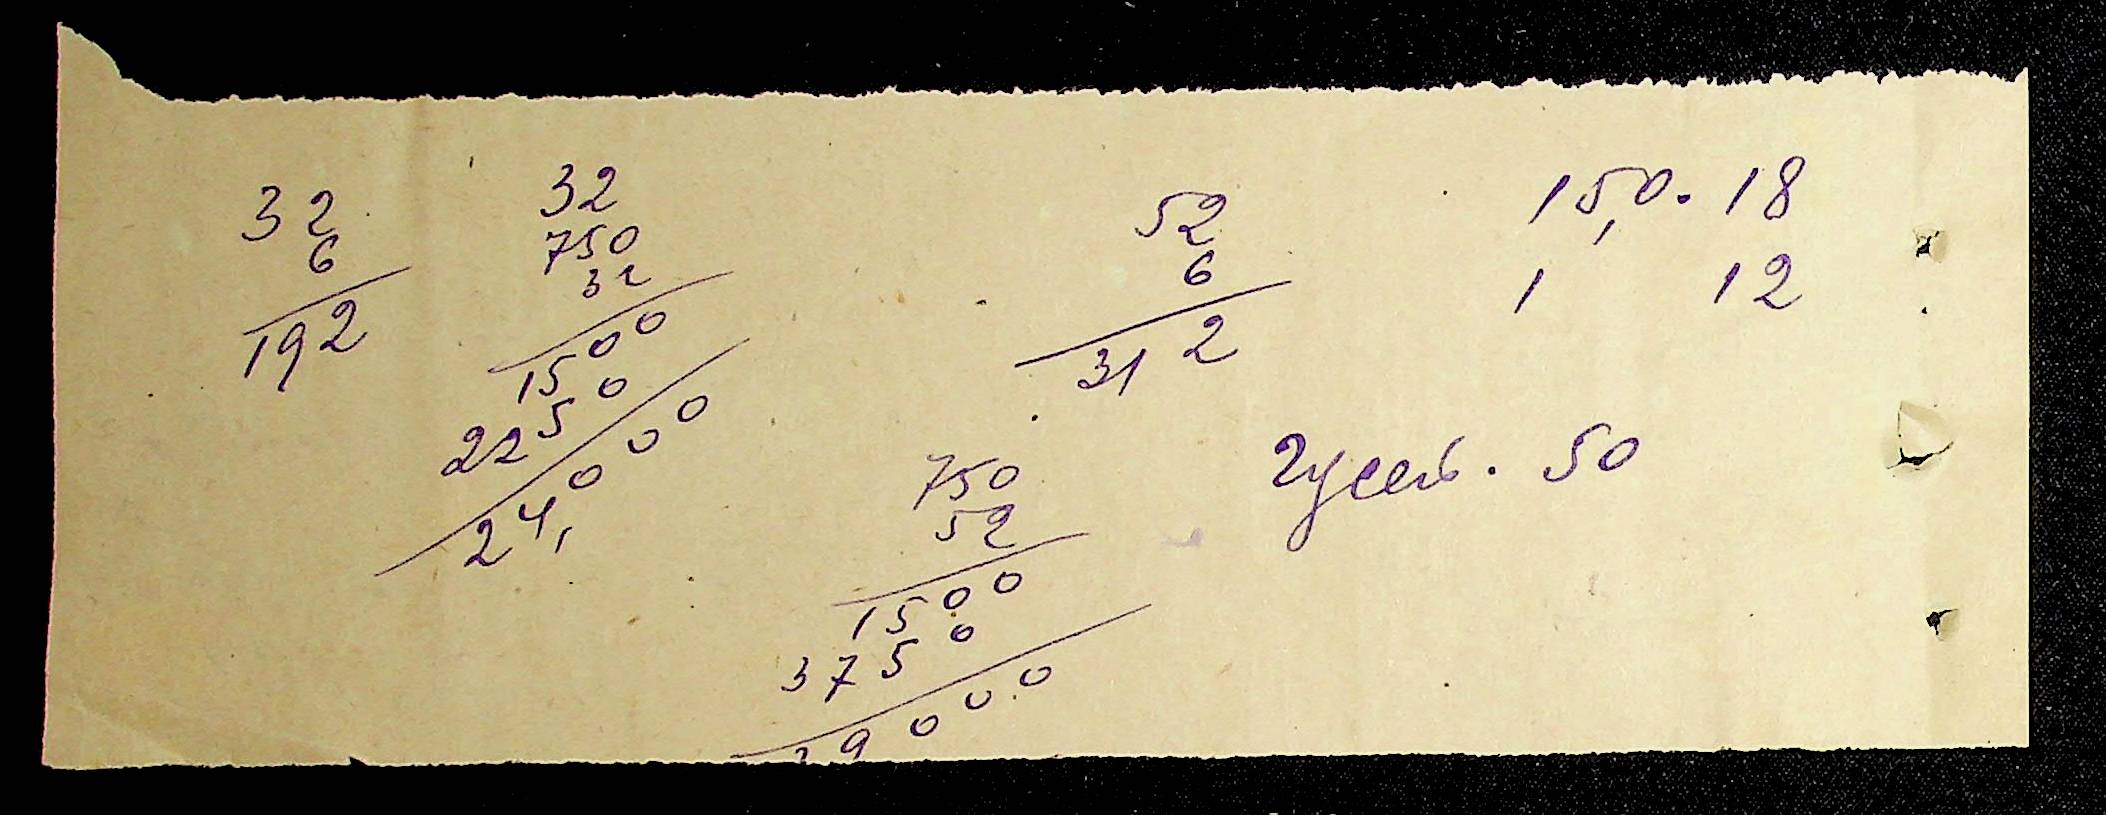 32
6
192
32
750
32
1500
2250
24,000
52
6
312
750
52
1500
3750
39000
15,0. 18
1 12
гусей. 50